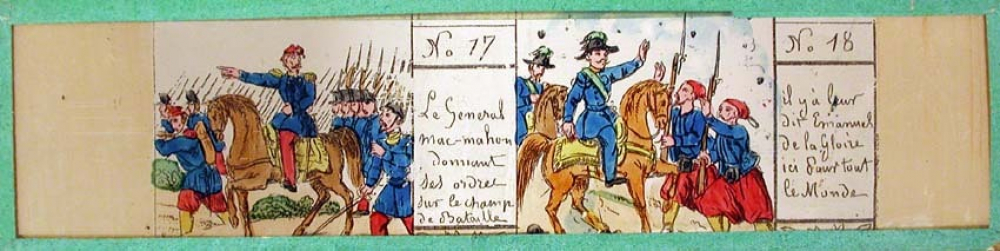 No 17
Le General
mac-mahon
donnant
ses ordres
sur le champ
de Bataille
No 18
il y à leur
dit Emanuel
de la Gloire
ici Pour tout
le Monde